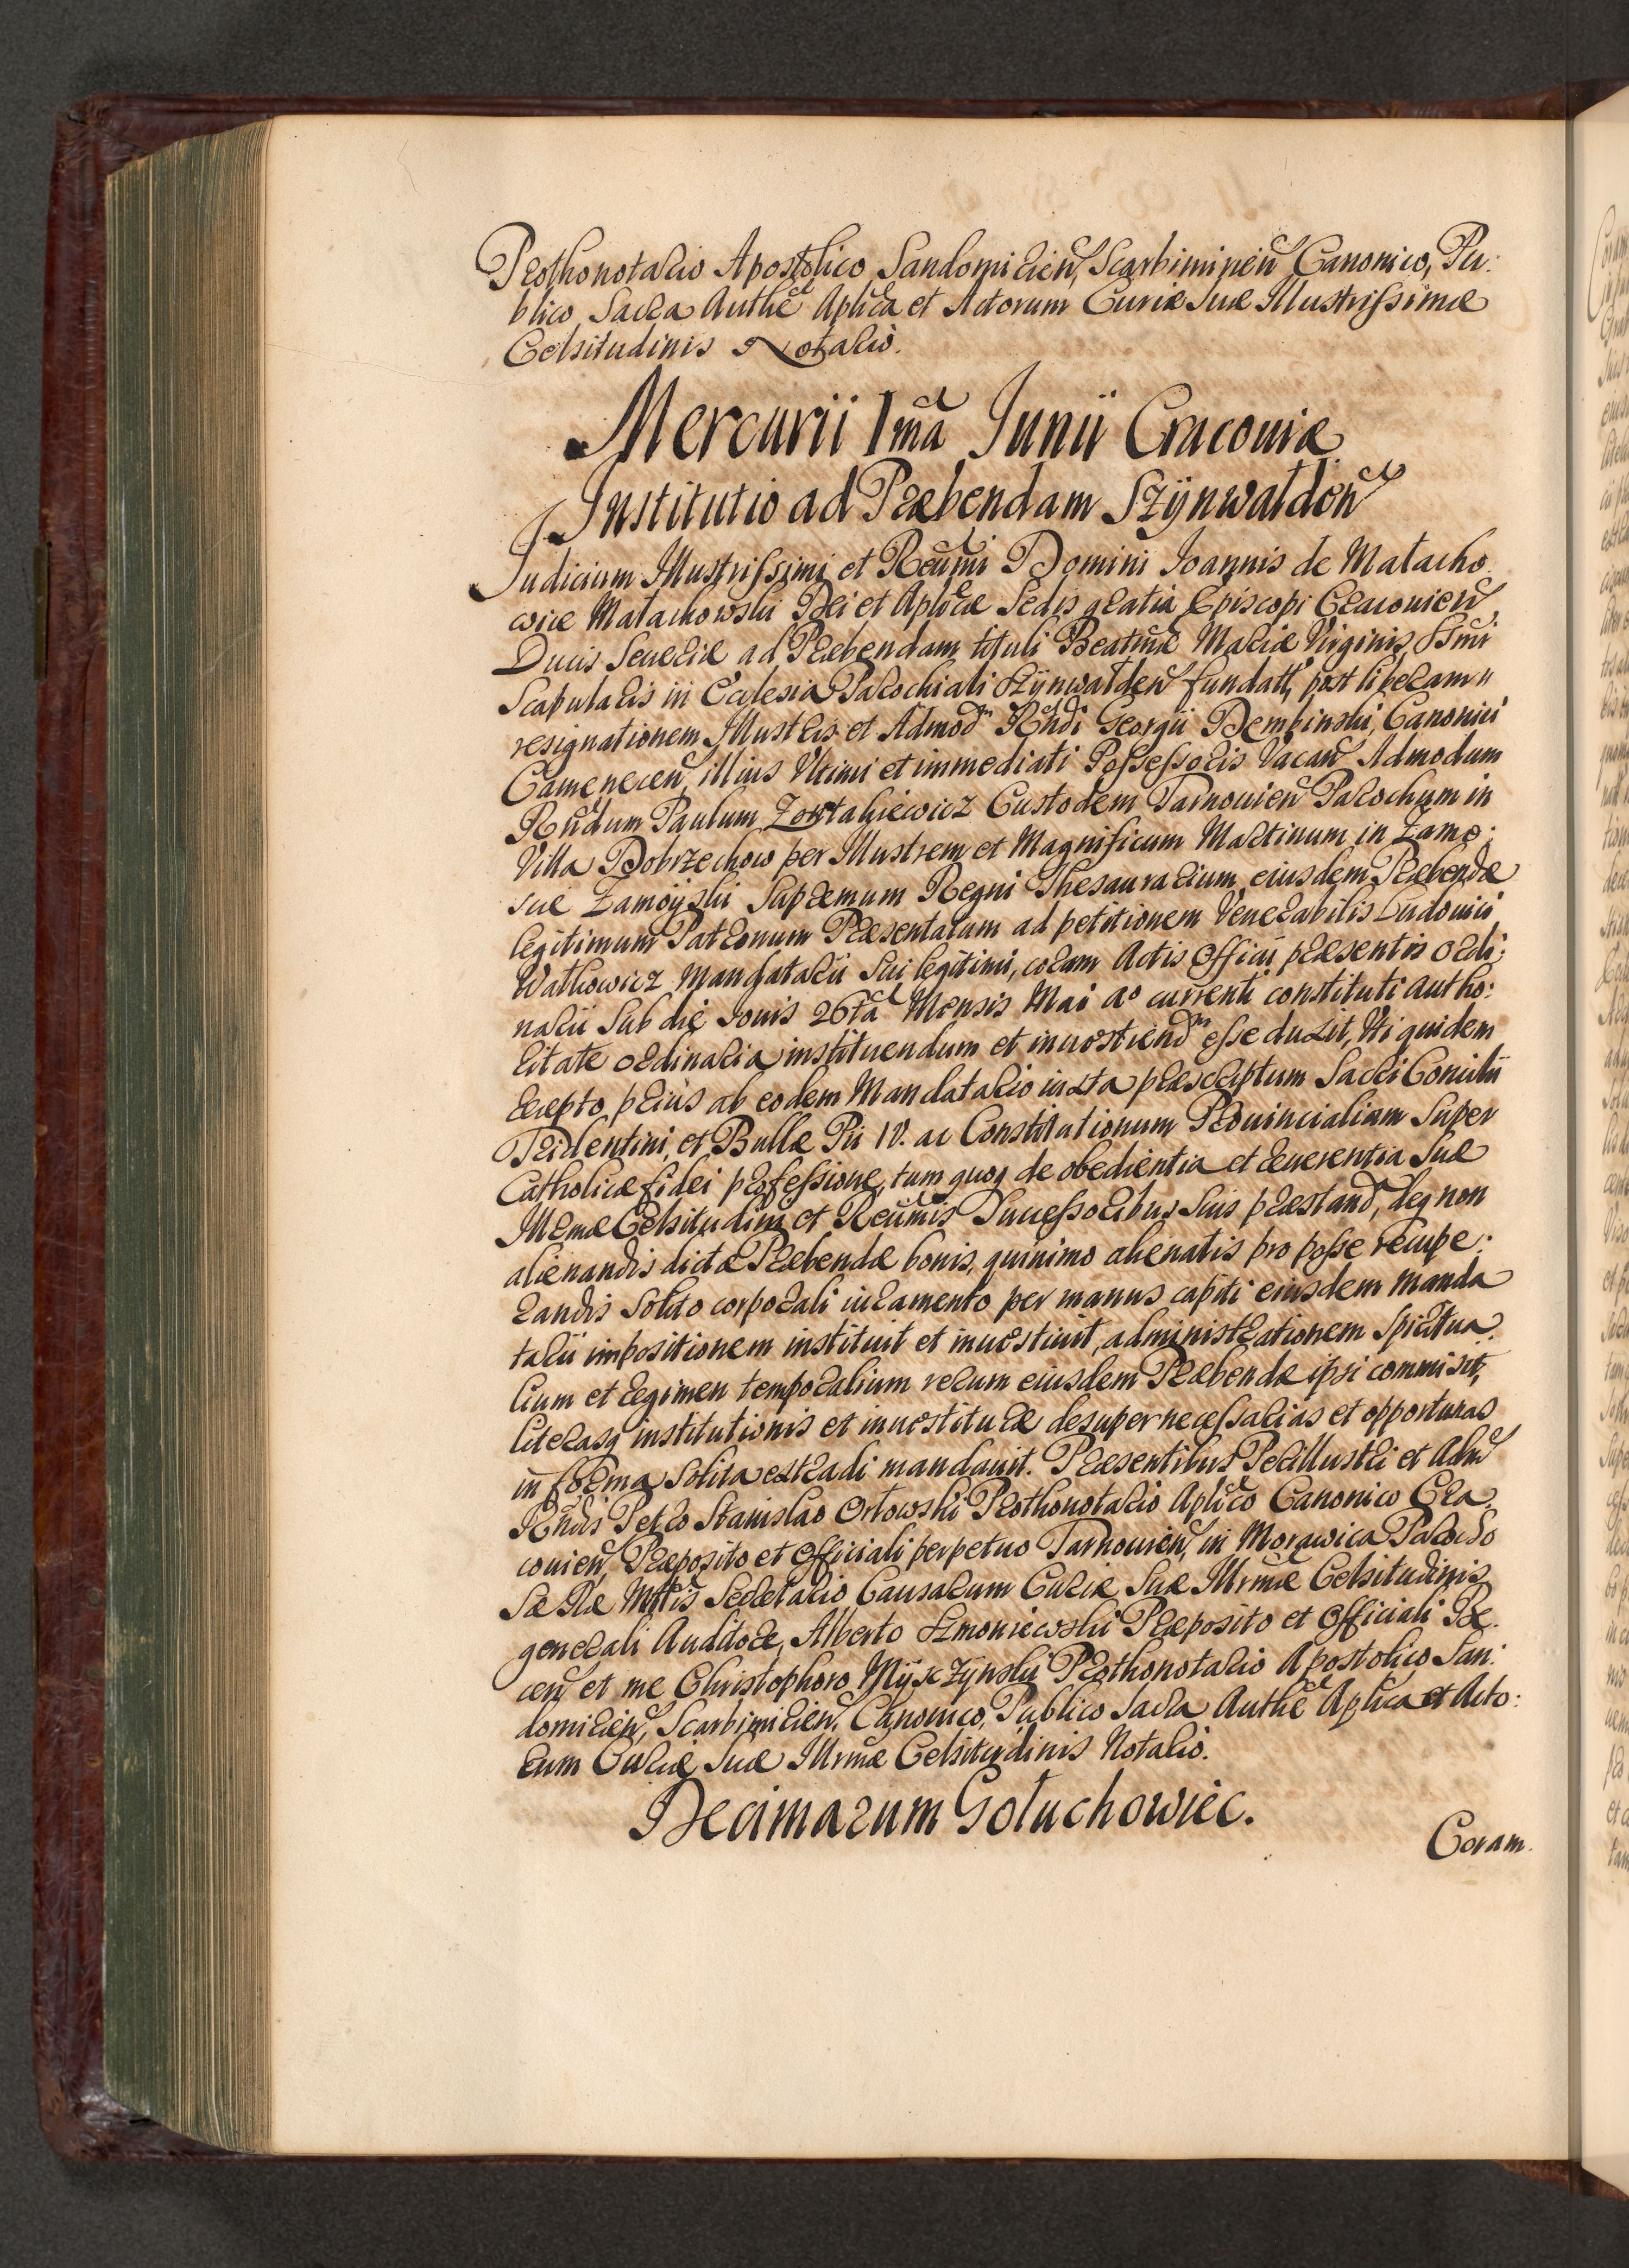 Prothonotario Apostolico Sandomirien, Scarbimirien Canonico, Pu:
blico Sacra Authe Aplica et Actorum Curiæ Suæ Illustrissimæ
Celsitudinis Notario.
Mercurii 1ma Junii Cracouiæ
Institutio ad Præbendam Szÿnwalden
Judicium Illustrissimi et Reumi Domini Joannis de Małacho:
wice Małachowski Dei et Aplicæ Sedis gratia Episcopi Cracouien,
Ducis Seueriæ ad Præbendam tituli Beatmæ Mariæ Virginis SSmi
Scapularis in Ecclesia Parochiali Szÿnwalden fundatt, post liberam
resignationem Illustris et Admod Rndi Georgii Dembinski, Canonici
Camenecen, illius Vltimi et immediati Possessoris Vacan Admodum
Rndum Paulum Custodem Tarnouien Parochum in
Villa Dobrzechow per Illustrem et Magnificum Martinum in Zamo:
scie Zamoÿski Supremum Regni Thesaurarium eiusdem Præbendæ
legitimum Patronum Præsentatum ad petitionem Venerabilis Ludouici
Watkowicz Mandatarii Sui legitimi, coram Actis Officii præsentis ordi:
narii Sub die Jouis 26ta Mensis Mai ao currenti constituti autho:
ritate ordinaria instituendum et inuestiend esse duxit, Vti quidem
recepto prius ab eodem Mandatario iuxta præscriptum Sacri Concilii
Tridentini, et Bullæ Pii IV. ac Constitutionum Prouincialium Super
Catholicæ fidei professione, tum quoq de obedientia et reuerentia Suæ
Illrmæ Celsitudini et Reumis Successoribus Suis præstand, deq non
alienandis dictæ Præbendæ bonis, quinimo alienatis pro posse recupe:
randis Solito corporali iuramento per manus capiti eiusdem Manda
tarii impositionem instituit et inuestiuit, administrationem Spiritua:
lium et regimen temporalium rerum eiusdem Præbendæ ipsi commisit,
literasq institutionis et inuestituræ desuper necessarias et opportunas
in forma Solita extradi mandauit. Præsentibus Perillustri et Adm
Rndis Petro Stanislao Orłowski Prothonotario Aplico Canonico Cra:
couien, Præposito et Officiali perpetuo Tarnouien, in Morawica Parocho
Sæ Ræ Mttis Secretario Causarum Curiæ Suæ Illrmæ Celsitudinis
generali Auditore, Alberto Szmoniewski Præposito et Officiali Be:
cen et me Christophoro Mÿszÿnski Prothonotario Apostolico San:
domirien, Scarbimirien, Canonico, Publico Sacra Authe Aplica et Acto:
rum Curiæ Suæ Illrmæ Celsitudinis Notario.
Decimarum Gołuchowiec.
Coram.